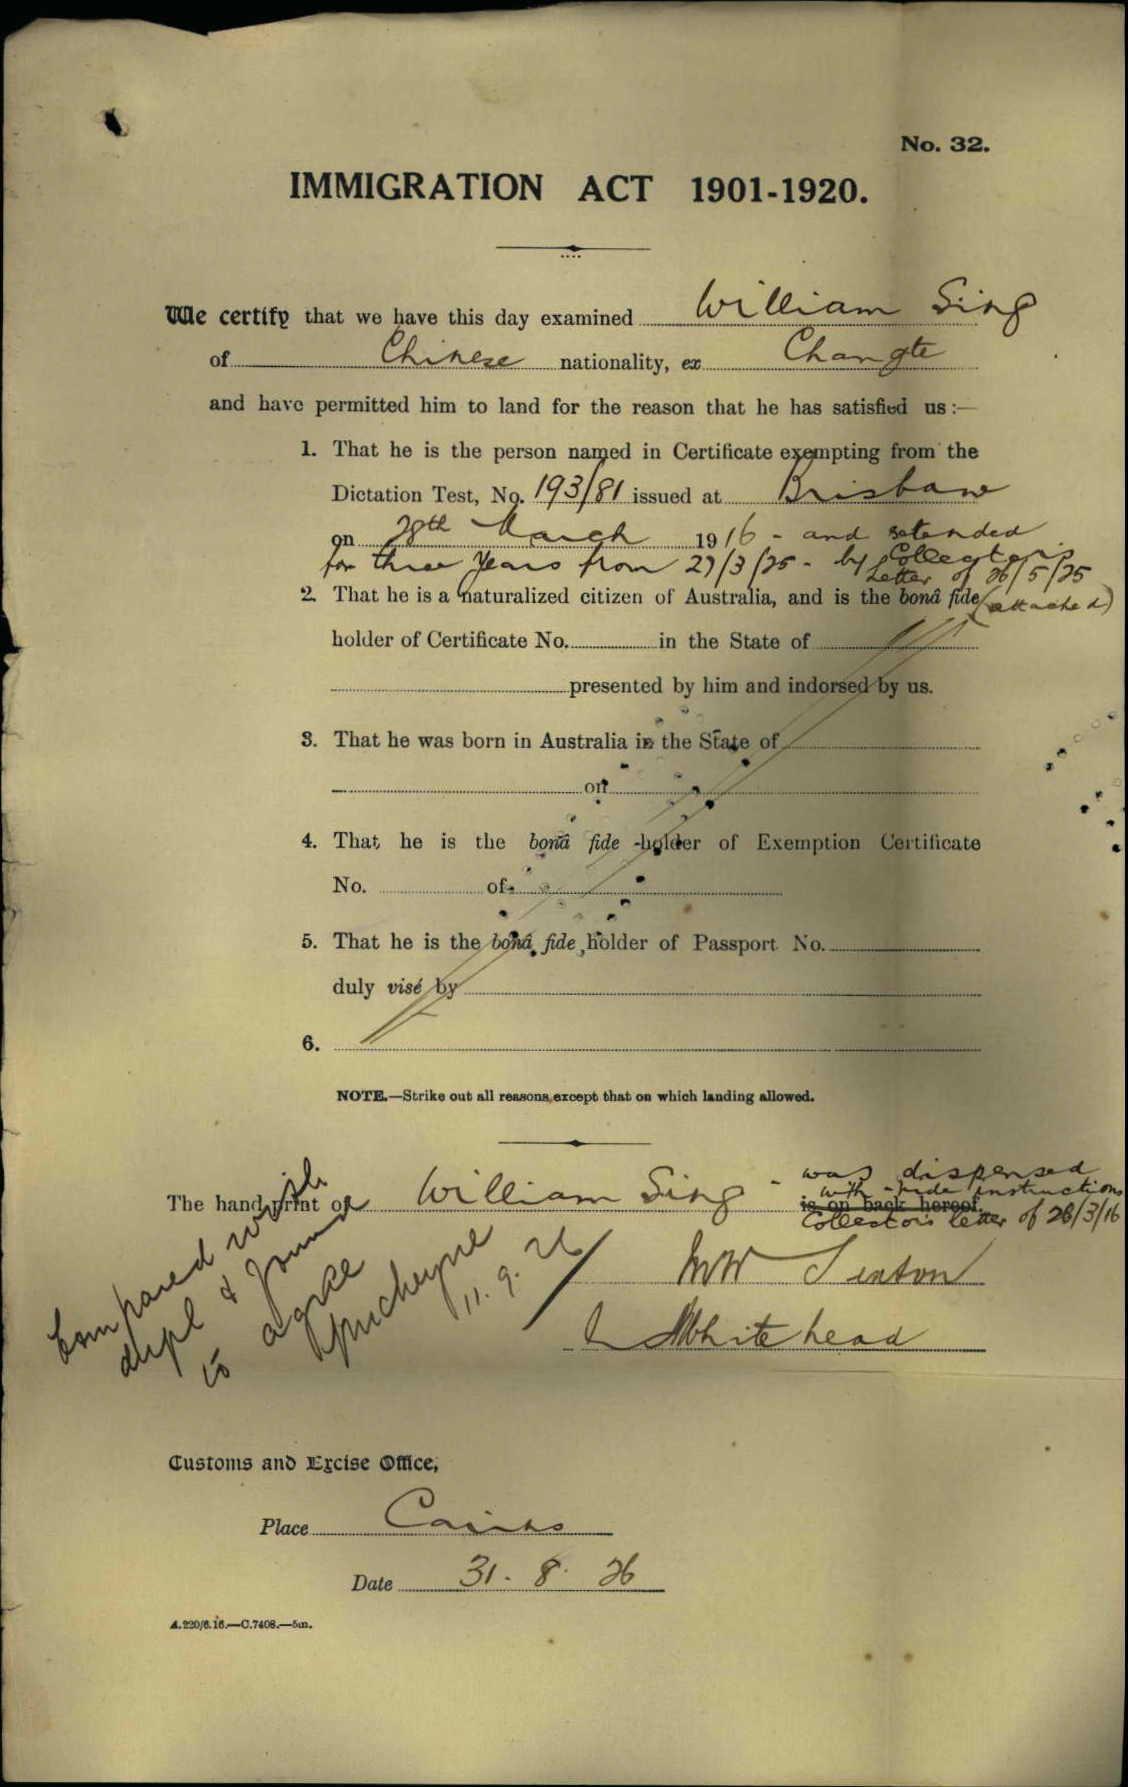 No. 32.
IMMIGRATION ACT 1901-1920.
We certify that we have this day examined William Sing
of Chinese nationality, ex Changte
and have permitted him to land for the reason that he has satisfied us :—
1. That he is the person named in Certificate exempting from the
Dictation Test, No. 193/81 issued at Brisbane
on 28th March 1916 - and extended
for three years from 27/3/25 - by Collectors
Letter of 26/5/25
2. That he is a naturalized citizen of Australia, and is the bonâ fide (attached)
holder of Certificate No. in the State of
presented by him and indorsed by us.
3. That he was born in Australia in the State of
on
4. That he is the bonâ fide holder of Exemption Certificate
No. of
5. That he is the bonâ fide holder of Passport No.
duly visé by
6.
NOTE.—Strike out all reasons except that on which landing allowed.
was dispensed
with - vide instructions
The hand print of William Sing - is on back hereof.
Collectors letter of 28/3/16
Compared with
dupl & found
to agree
11.9.26
Whitehead
Customs and Excise Office,
Place Cairns
Date 31.8.26
A.220/6.16.—C.7408.—5m.